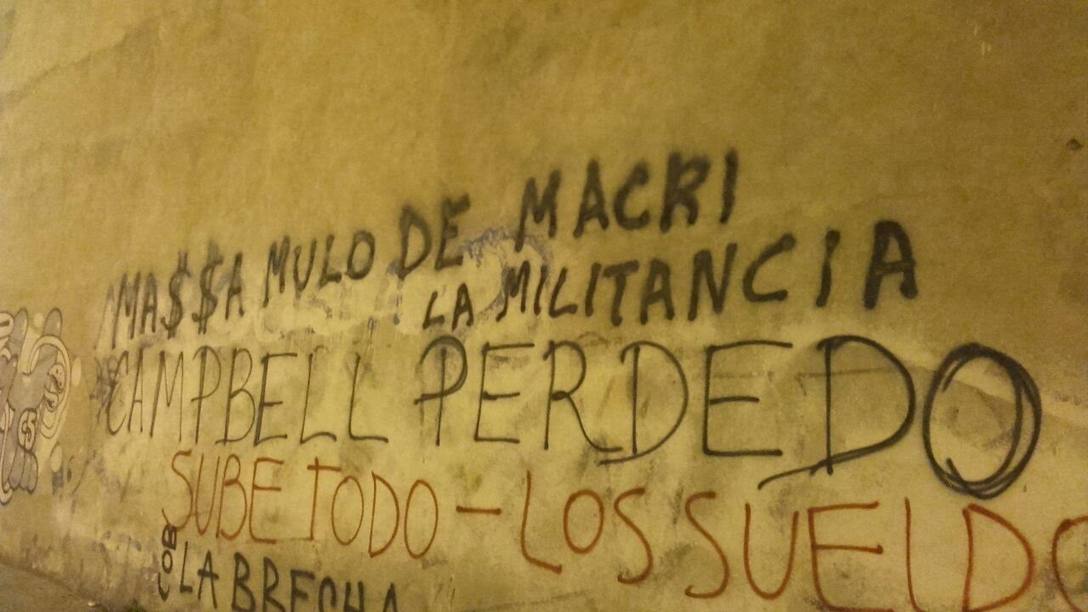 MA$$A MULO DE MACRI
LA MILITANCIA
CAMPBELL PERDEDO
SUBE TODO - LOS SUELDO
COB
LA BRECHA